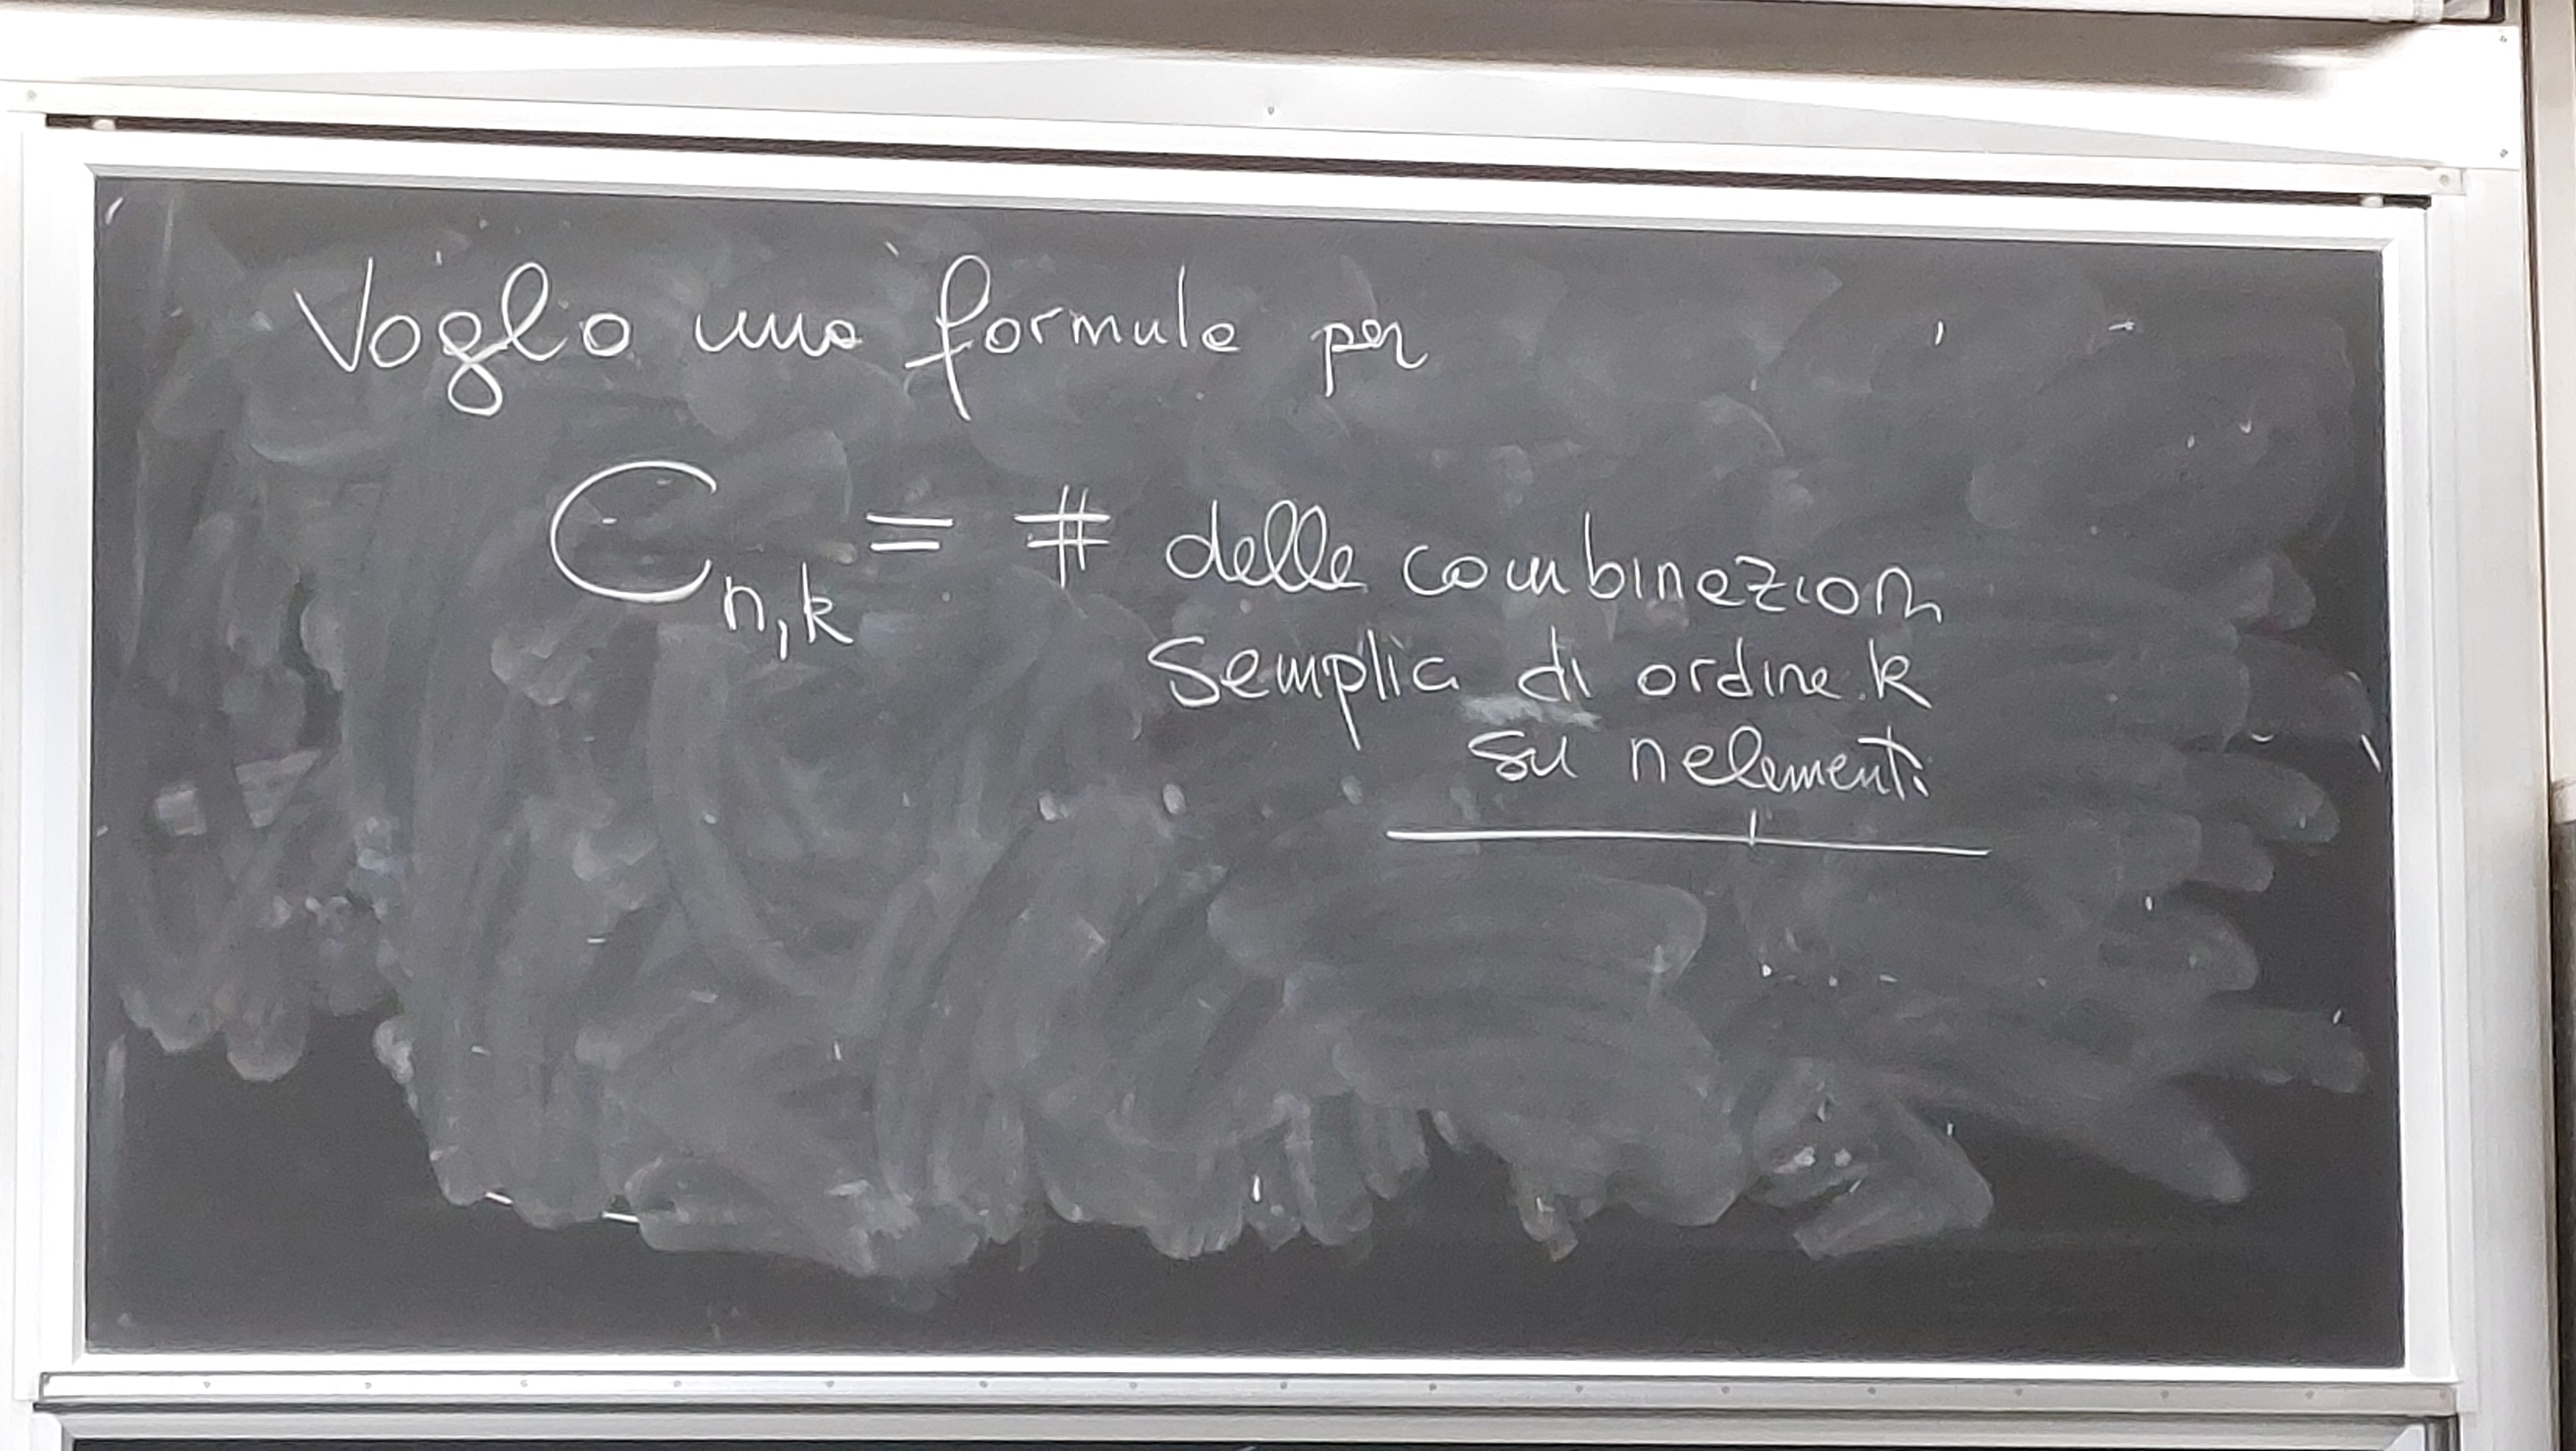 Voglio una formula per
C_{n,k} = # delle combinazioni
semplici di ordine k
su n elementi